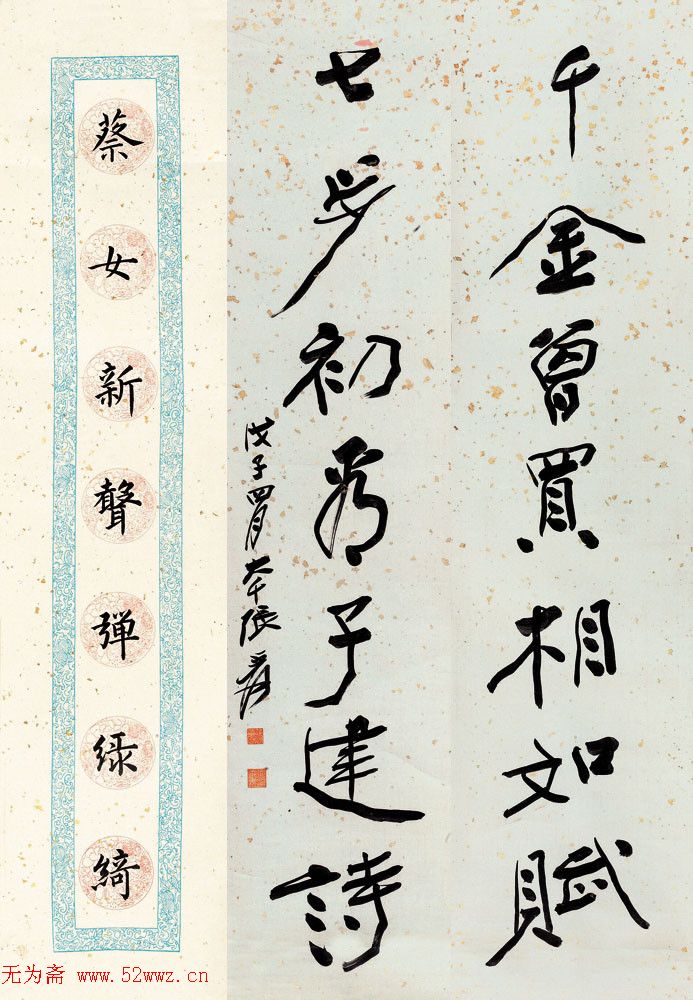 千金曾買相如賦
七步初看子建詩
戊子四月大千張爰
蔡女新聲彈綠綺
无为斋 www.52wwz.cn